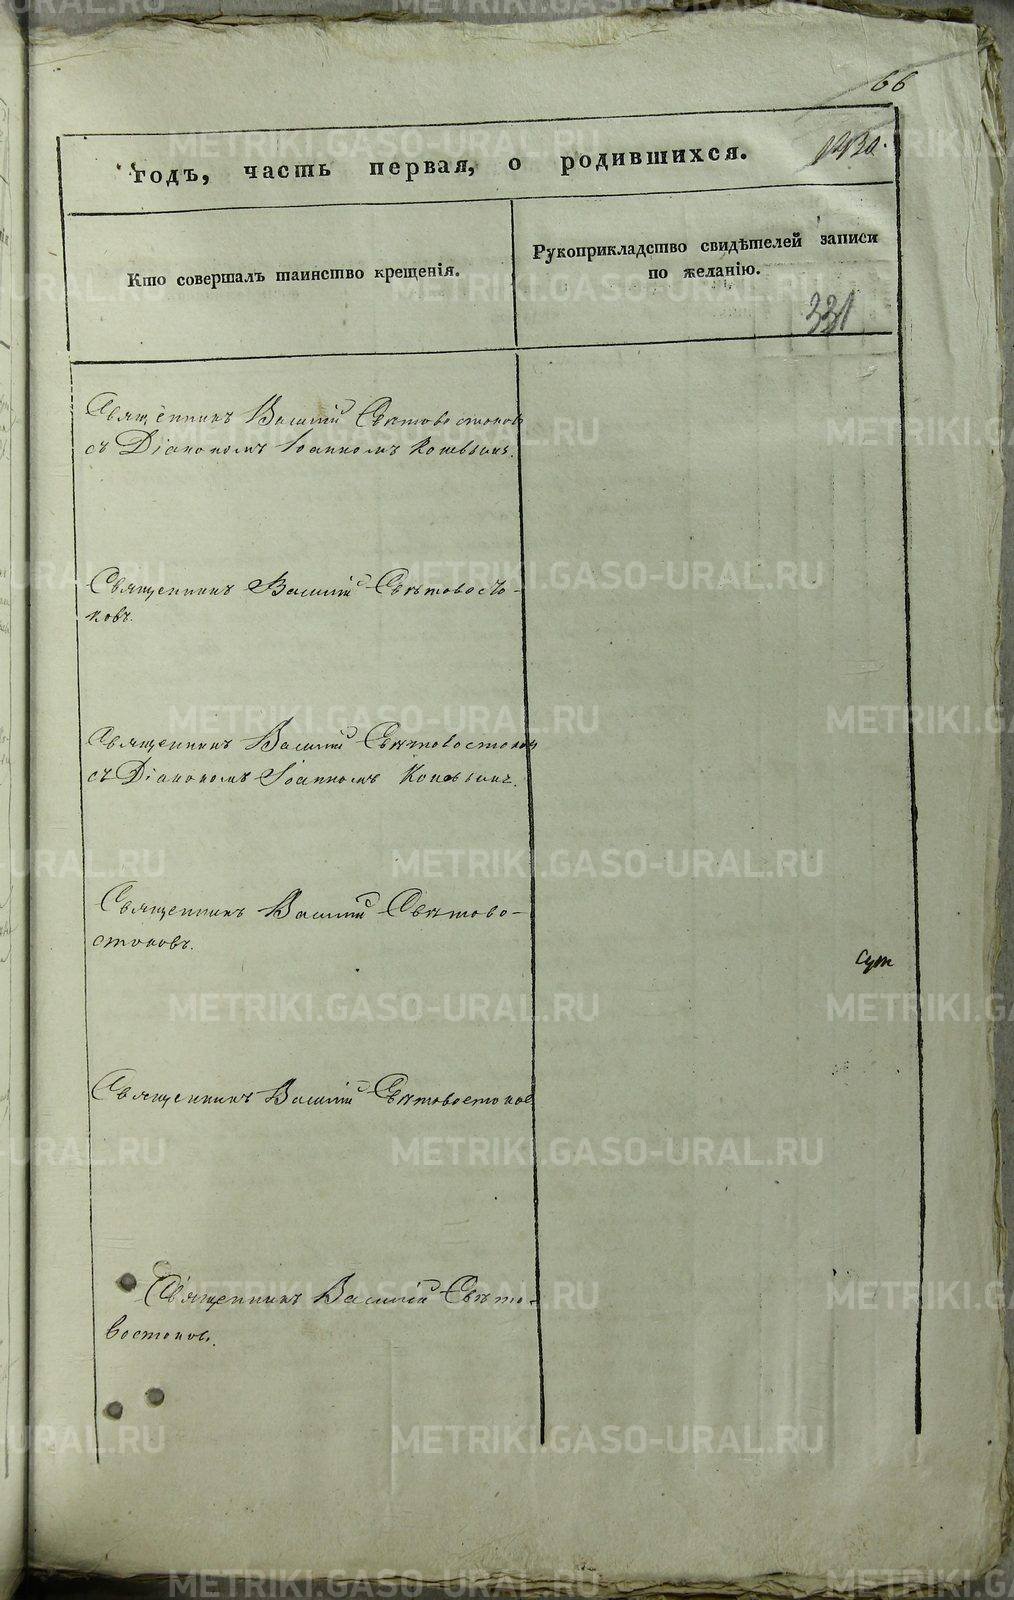 66
годъ, часть первая, о родившихся.
Кто совершалъ таинство крещенія.
Рукоприкладство свидѣтелей записи
по желанію.
331
Священникъ Василій Свѣтовостоковъ
съ Діакономъ Іоанномъ
Священникъ Василій Свѣтовосто-
ковъ.
Священникъ Василій Свѣтовостоковъ
съ Діакономъ Іоанномъ
Священникъ Василій Свѣтово-
стоковъ.
Священникъ Василій Свѣтовостоков
Священникъ Василій Свѣто-
востоковъ.
METRIKI.GASO-URAL.RU